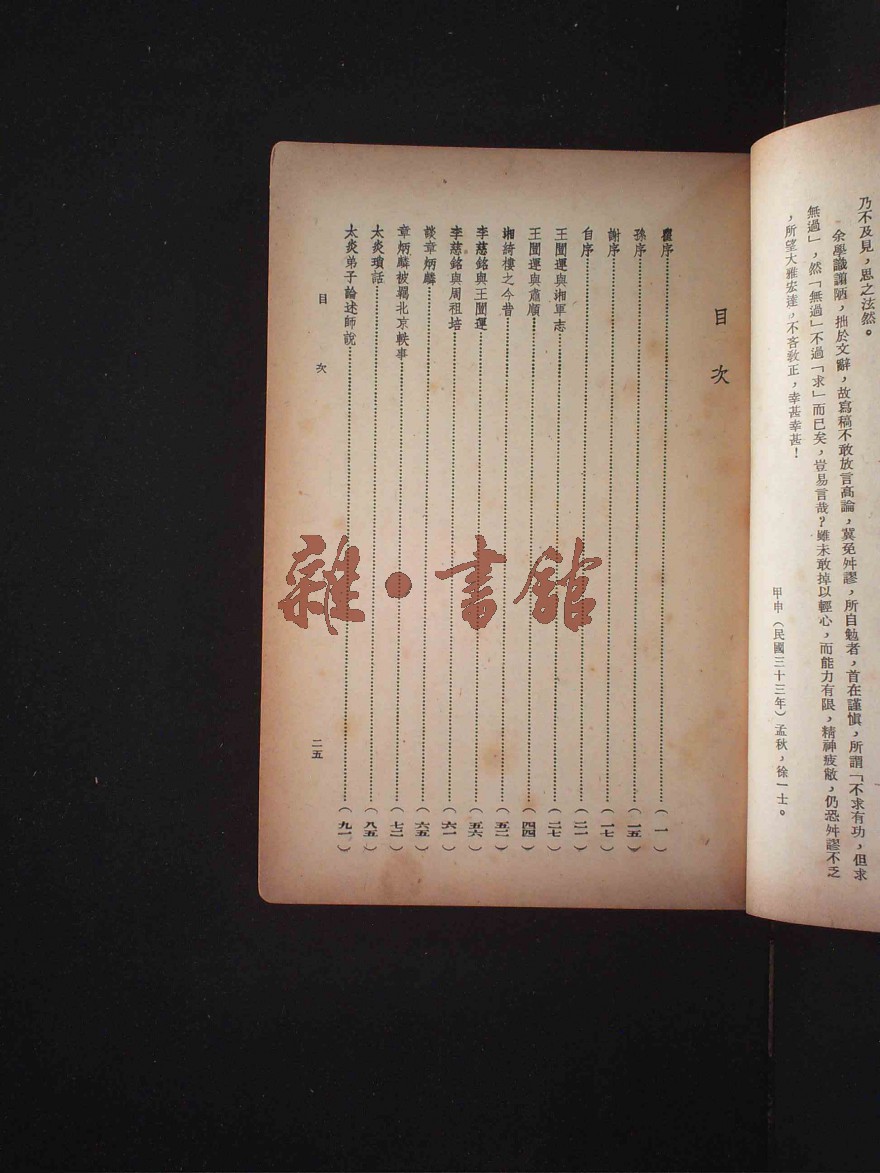 乃不及見，思之泫然。
余學識譾陋，拙於文辭，故寫稿不敢放言高論，冀免舛謬，所自勉者，首在謹慎，所謂「不求有功，但求
無過」，然「無過」不過「求」而已矣，豈易言哉？雖未敢掉以輕心，而能力有限，精神疲敝，仍恐舛謬不乏
，所望大雅宏達，不吝教正，幸甚幸甚！
甲申（民國三十三年）孟秋，徐一士。
目次
瞿序……（一）
孫序……（一五）
謝序……（一七）
自序……（二一）
王闓運與湘軍志……（二七）
王闓運與肅順……（四四）
湘綺樓之今昔……（五二）
李慈銘與王闓運……（五六）
李慈銘與周祖培……（六一）
談章炳麟……（六五）
章炳麟被羈北京軼事……（七二）
太炎瑣話……（八五）
太炎弟子論述師說……（九一）
目次
二五
雜•書館